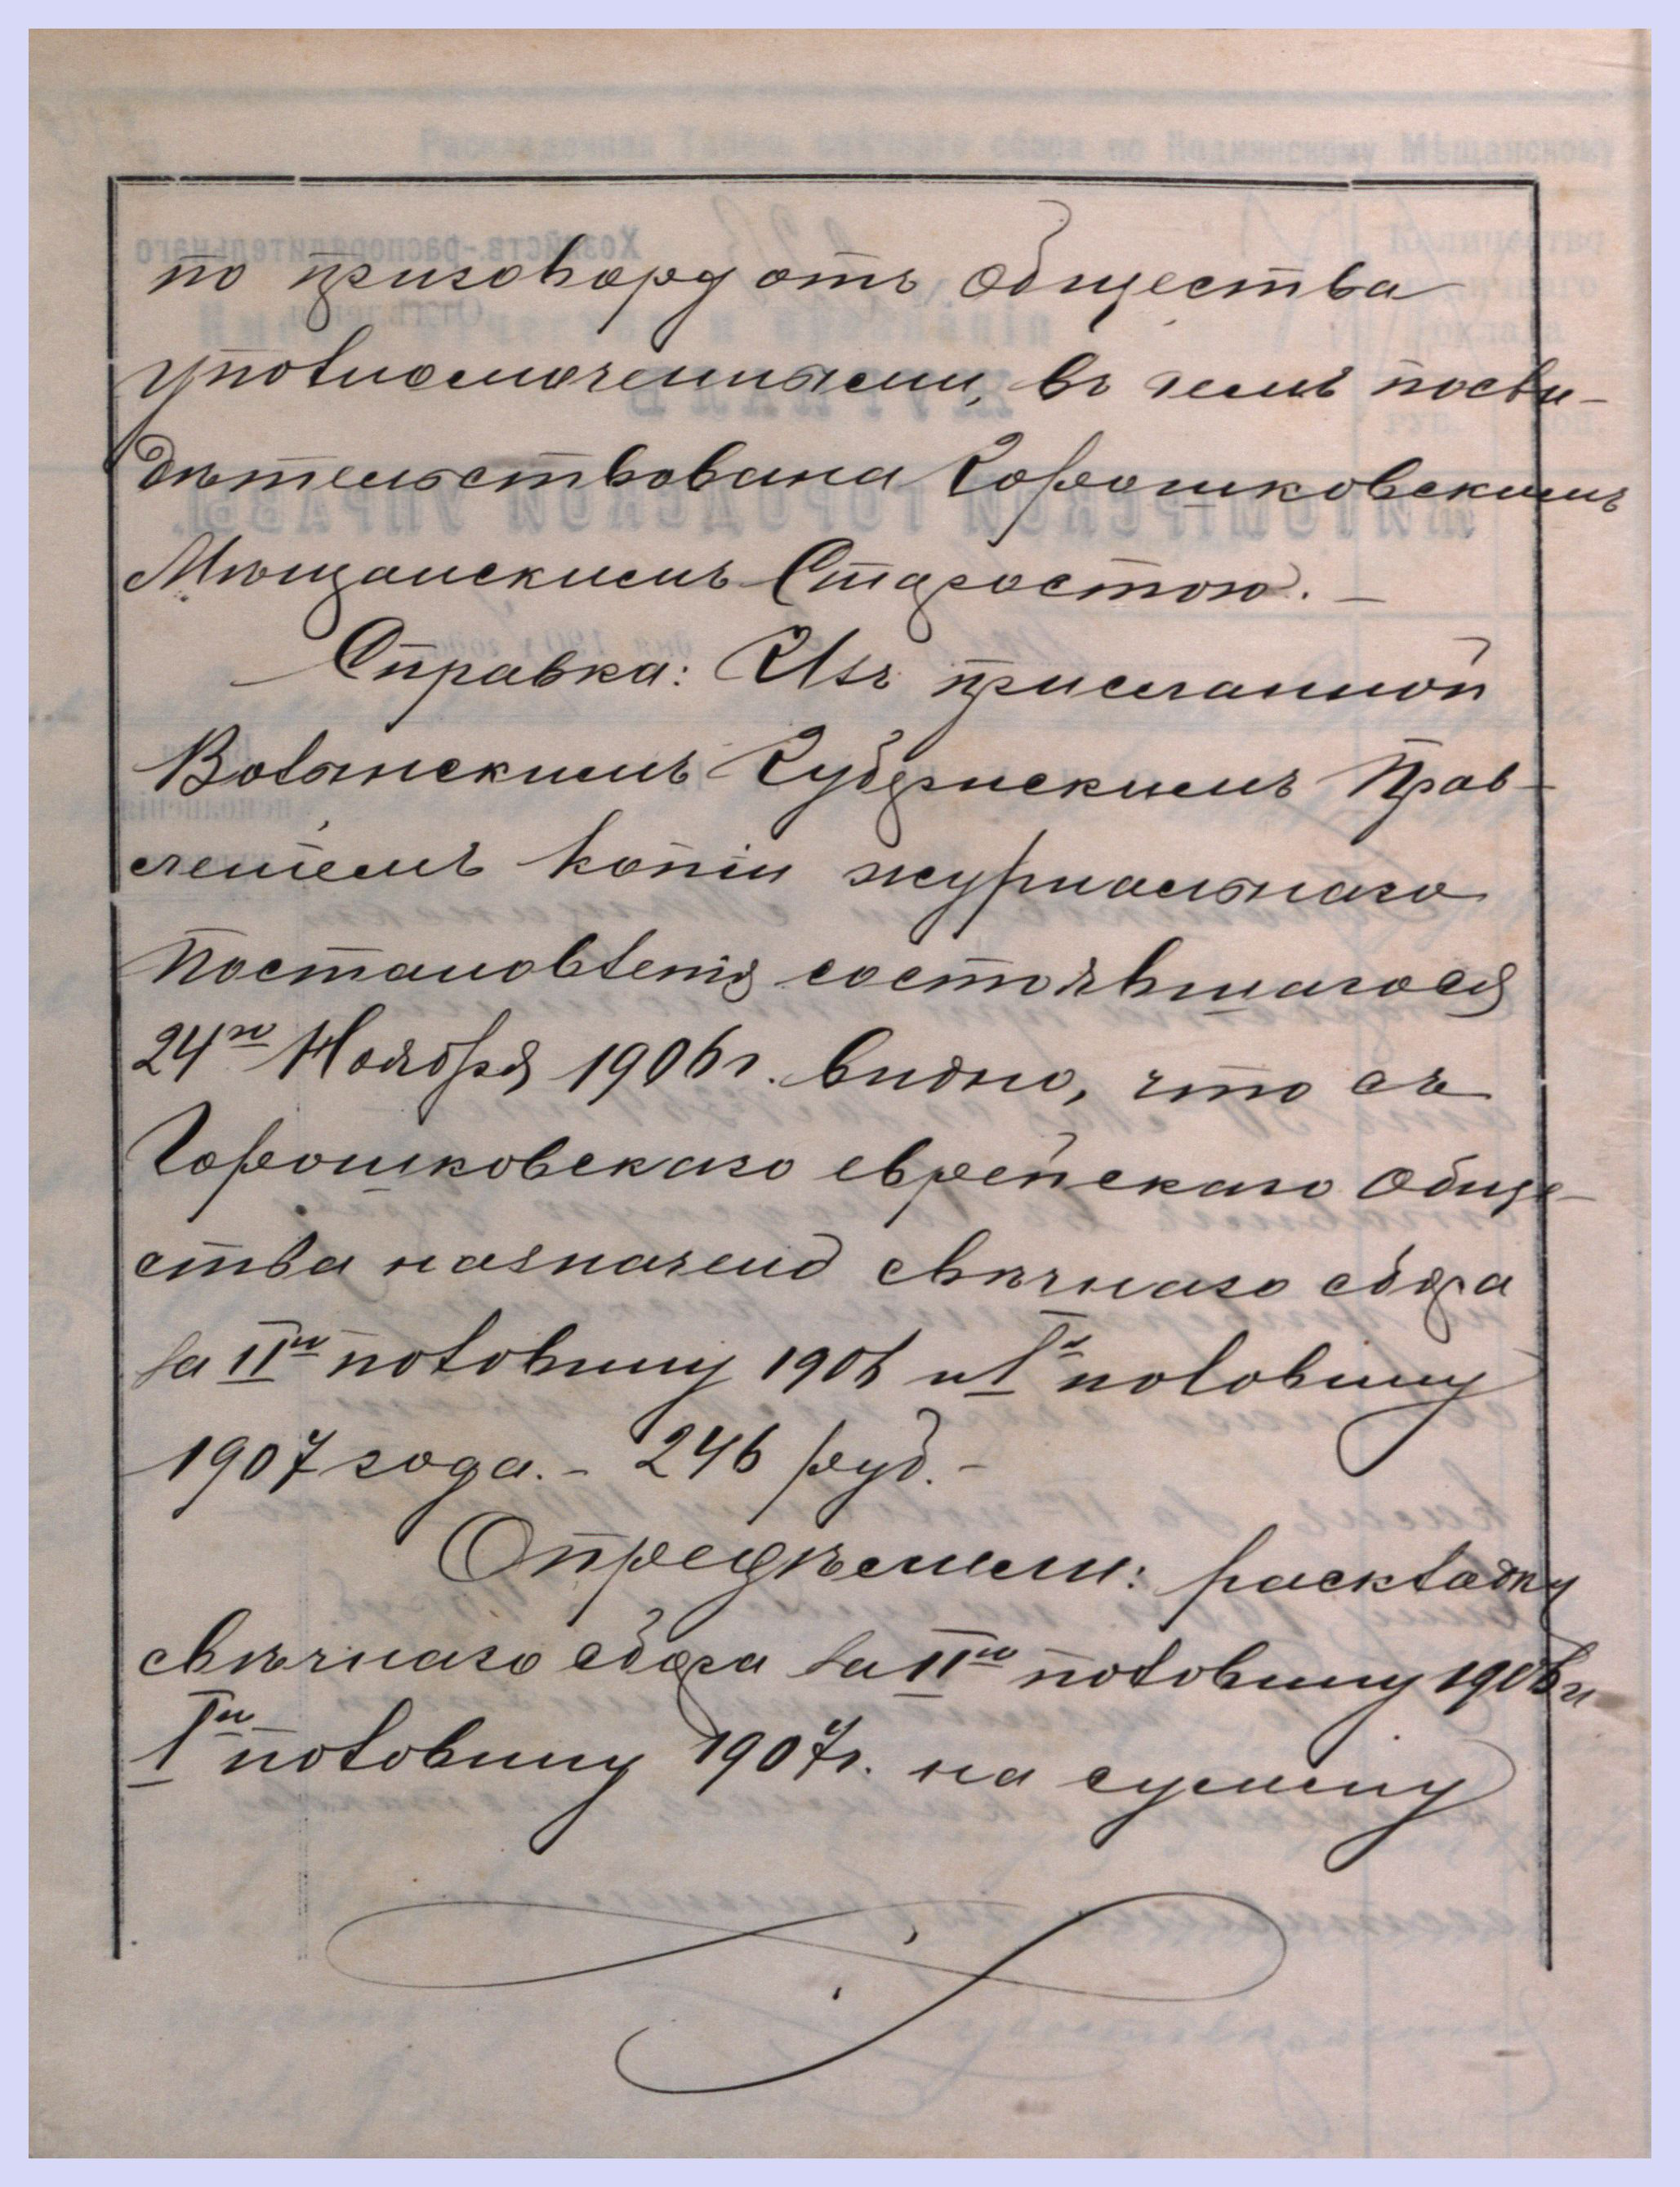 по приговору отъ Общества
уполномоченными, въ чемъ посви-
дѣтельствована Горошковскимъ
Мѣщанскимъ Старостою. —
Справка: Изъ присланной
Волынскимъ Губернскимъ Прав-
леніемъ копіи журнальнаго
постановленія состоявшагося
24го Ноября 1906 г. видно, что съ
Горошковскаго еврейскаго Обще-
ства назначено свѣчнаго сбора
за IIю половину 1906 и Iю половину
1907 года. - 246 руб. -
Опредѣлили: раскладку
свѣчнаго сбора за IIю половину 1906 и
Iю половину 1907 г. на сумму